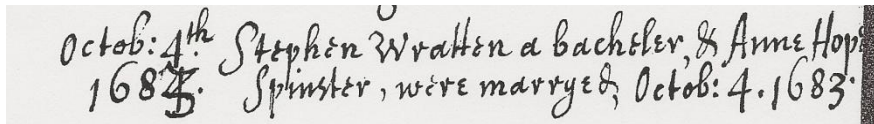 Octob: 4th. Stephen Wratten a bacheler, & Anne Hope
1683. Spinster, were marryed, Octob: 4. 1683.